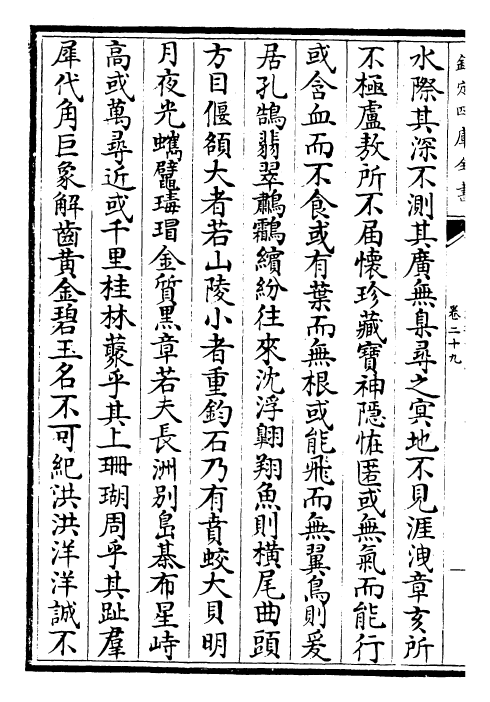 欽定四庫全書
卷二十九
水際其深不測其廣無臬尋之㝠地不見涯洩章亥所
不極盧敖所不届懐珍藏寳神隠恠匿或無氣而能行
或含血而不食或有葉而無根或能飛而無翼鳥則爰
居孔鵠翡翠鷫鸘繽紛往來沈浮翺翔魚則横尾曲頭
方目偃額大者若山陵小者重鈞石乃有賁蛟大貝明
月夜光蠵鼊瑇瑁金質黒章若夫長洲别島棊布星峙
高或萬尋近或千里桂林藂乎其上珊瑚周乎其趾羣
犀代角巨象解齒黄金碧玉名不可紀洪洪洋洋誠不